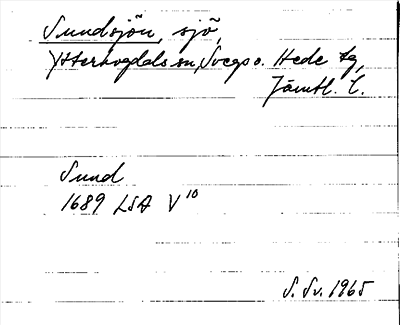 Sundsjön, sjö,
Ytterhogdals sn, Svegs o. Hede tg,
Jämtl. l.
Sund
1689 LSA V 10
S. Sv. 1965